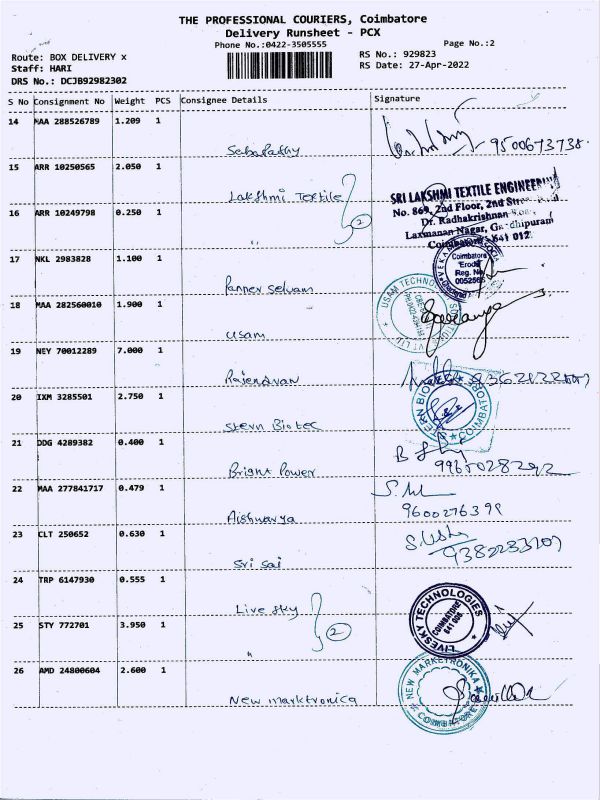 THE PROFESSIONAL COURIERS, Coimbatore
Delivery Runsheet - PCX
Phone No.:0422-3505555
Page No.:2
Route: BOX DELIVERY x
RS No.: 929823
Staff: HARI
RS Date: 27-Apr-2022
DRS No.: DCJB92982302
S No Consignment No Weight PCS Consignee Details Signature
14 MAA 288526789 1.209 1
Sabapathy 9500673738.
15 ARR 10250565 2.050 1
Lakshmi Textile
SRI LAKSHMI TEXTILE ENGINEER
No. 869, 2nd Floor, 2nd
16 ARR 10249798 0.250 1
Dr. Radhakrishnan
Laxmanan Nagar, Gandhipuram
Coimbatore 641 012
2
"
17 NKL 2983828 1.100 1
Coimbatore
Erode
Reg. No
Panner selvam
18 MAA 282560010 1.900 1
USAM TECHNOLOGY
Usam
19 NEY 70012289 7.000 1
Rajendran
20 IXM 3285501 2.750 1
COIMBATORE
Stern Biotec
21 DDG 4289382 0.400 1
Bright Power 9965028292
22 MAA 277841717 0.479 1
Aishwarya 9600276399
23 CLT 250652 0.630 1
Sri Sai
24 TRP 6147930 0.555 1
Live sky
LIVESKY TECHNOLOGIES
COIMBATORE
25 STY 772701 3.950 1
2
"
26 AMD 24800604 2.600 1
NEW MARKETRONIKA
COIMBATORE
New marktronica